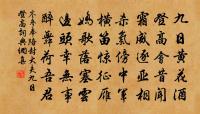 九日黄花酒
登高會昔聞
霜威逐亞相
殺氣傍中軍
橫笛驚征雁
嬌歌落塞雲
邊頭幸無事
醉舞荷吾君
岑參奉陪封大夫九日
登高詞典網集